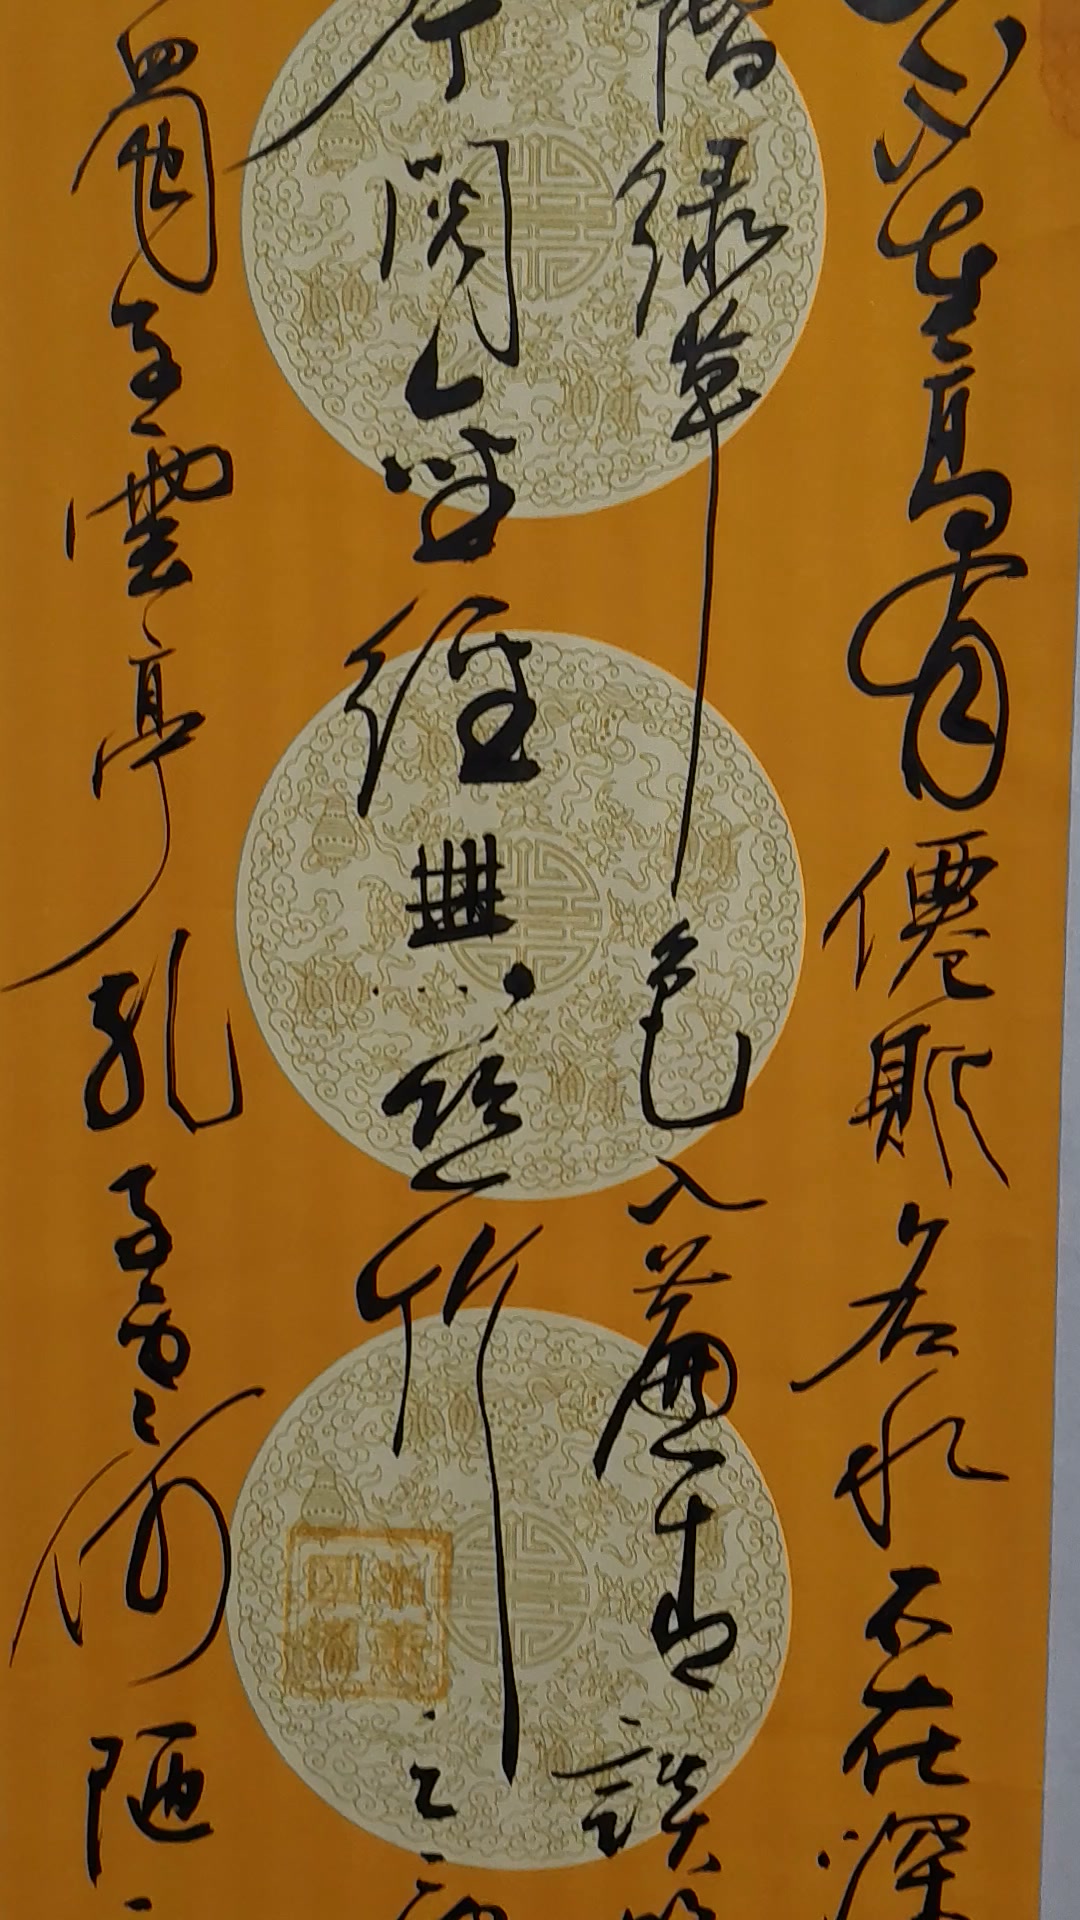 不在高有僊則名水不在深
階綠草色入簾青談
琴閱金經無絲竹之
蜀子雲亭孔子云何陋